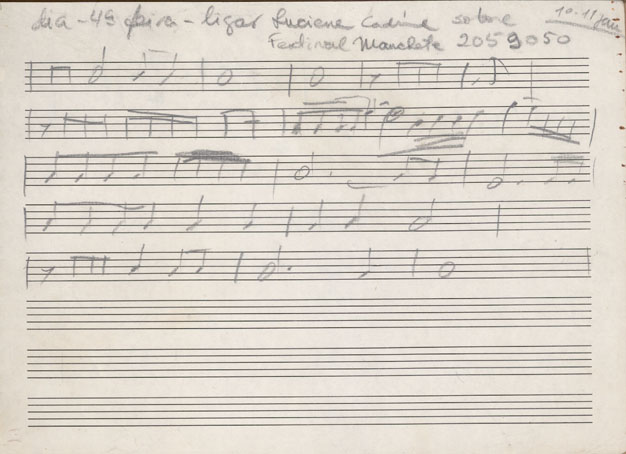 dia - 4ª feira - ligar Luciene sobre
10-11 jan
Festival Manchete 2059050